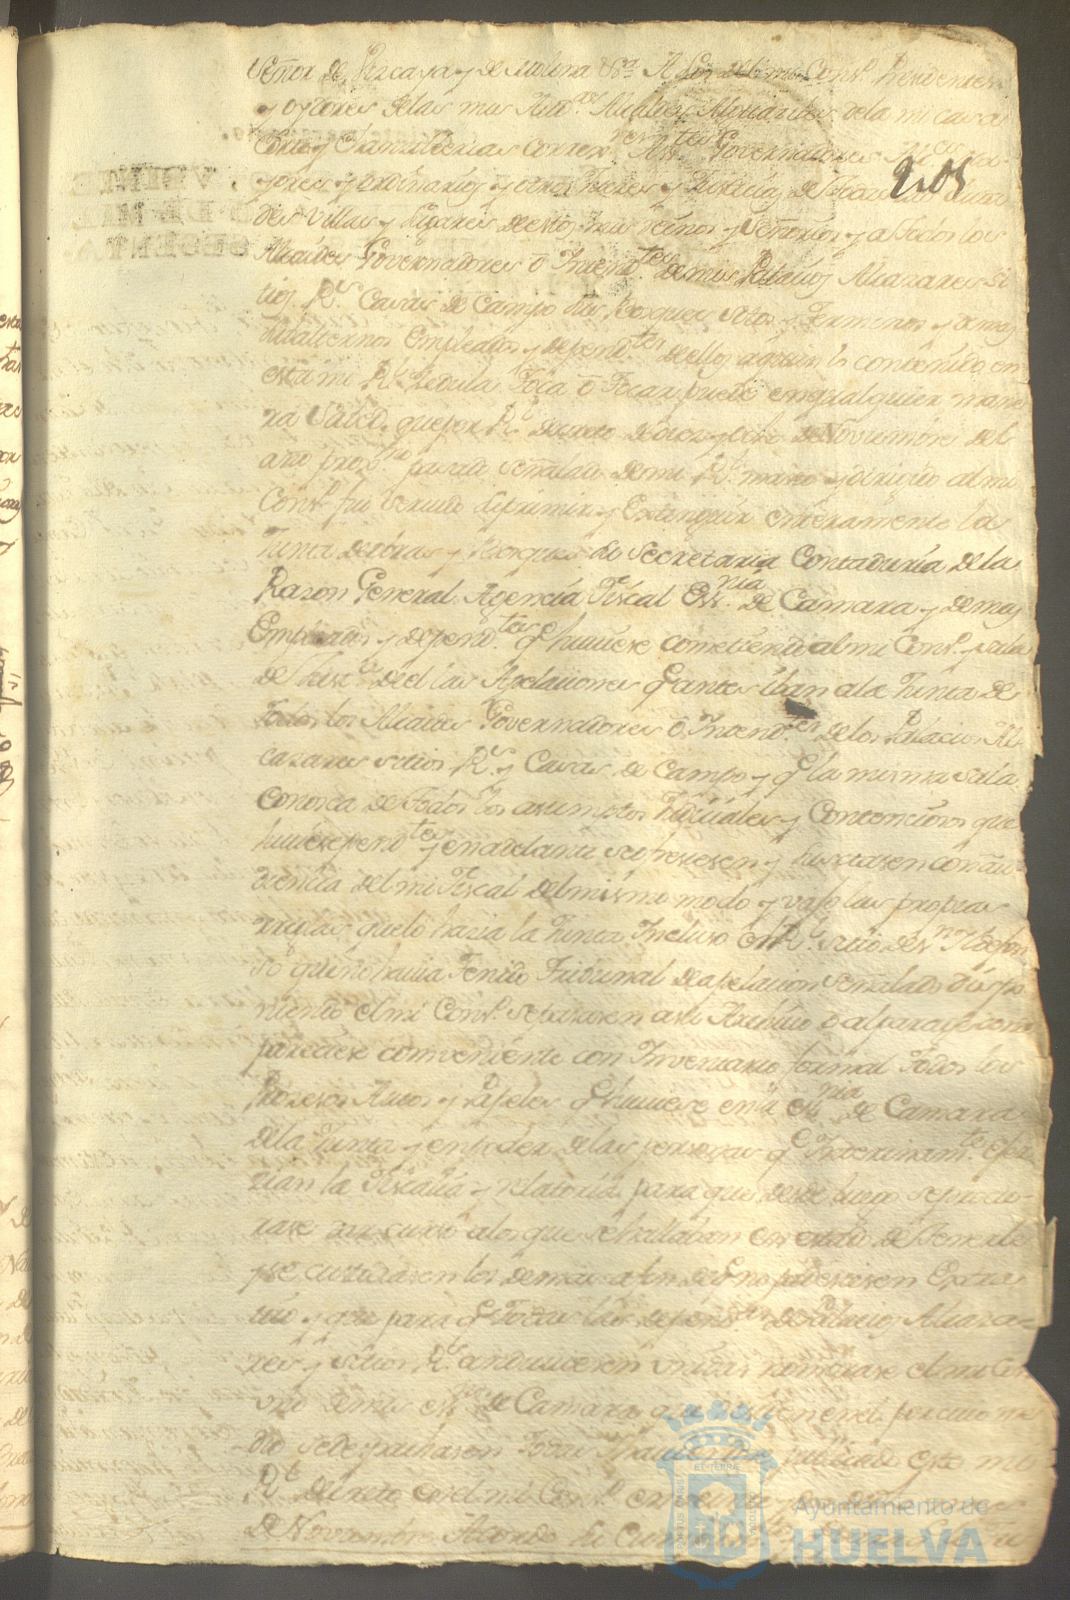 Señor de Vizcaya y de Molina &ª A los del mi Consº. Presidentes
y oydores de las mis Audᵃˢ Alcaldes Alguaciles de la mi casa
Corte y Chancillerias Corregʳᵉˢ Assᵗᵉˢ Governadores Alcᵉˢ ma-
yores y ordinarios y otros Juezes y Justicias de todas las ciuda
des villas y lugares de estos mis reinos y Señorios y a todos los
Alcaides Governadores o Intendᵗᵉˢ de mis Palacios Alcazares Si
tios Rˢ Casas de Campo sus Bosques Sotos y Terminos y demas
subalternos Empleados y dependᵗᵉˢ de ellos a quien lo contenido en
esta mi Rˡ Zedula toca o tocar puede en qualquier mane
ra Sabed, que por Rˡ decreto de diez y ocho de Noviembre del
año proxᵐᵒ pasado señalado de mi Rˡ mano y dirigido al mi
Consº fui servido suprimir y Extinguir enteramente la
Junta de obras y Bosques su Secretaria Contaduria de la
Razon General Agencia Fiscal Essⁿⁱᵃ de Camara y demas
Empleados y dependᵗᵉˢ q huviese cometiendo al mi Consº y sala
de Justª de el las Apelaciones q antes iban a la Junta de
todos los Alcaides Governadores o Intendᵗᵉˢ de los Palacios Al
cazares sitios Rˢ y Casas de Campo y q la misma sala
conosca de todos los asumptos Judiciales y Contenciosos que
huviese pendᵗᵉˢ y en adelante se ofreciesen y suscitasen con au-
diencia del mi Fiscal del mismo modo y vajo las propias
reglas que lo hazia la Junta Incluso el Rˡ sitio de Sⁿ Ildefon
so que no havia tenido Tribunal de apelacion señalado dispo
niendo el mi Consº se pasasen a su Archivo o al paraje que
pareciese conveniente con Inventario formal todos los
Procesos Autos y Papeles q huviese en la essⁿⁱᵃ de Camara
de la Junta y en poder de las personas q Interinamᵗᵉ ejer
cian la Fiscalia y relatoria para que desde luego se prove-
iase dar curso a los que se hallaban en estado de tenerle
y se custodiasen los demas a fin de q no padeciesen Extra
vio y que para q todas las dependᵃˢ de Palacios Alcaza-
res y sitios Rˢ anduviesen unidas nombrase el mi Con
uno de mis essⁿᵒˢ de Camara que por cuio me
dio se despachasen todas publicado este mi
Rˡ decreto en el mi Consº en veinte y
de Noviembre Acordo su Cumplimᵗᵒ
2205
VEINTE
DE MIL
SESENTA
Ayuntamiento de
HUELVA